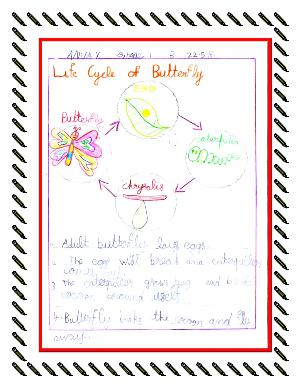 Grade 1
Life Cycle of Butterfly
Egg
Butterfly
Caterpillar
Chrysalis
1. Adult butterfly lays eggs.
2. The egg will break and a caterpillar
comes
3. The caterpillar grows big and
cocoon around itself.
4. Butterfly breaks the cocoon and
away.